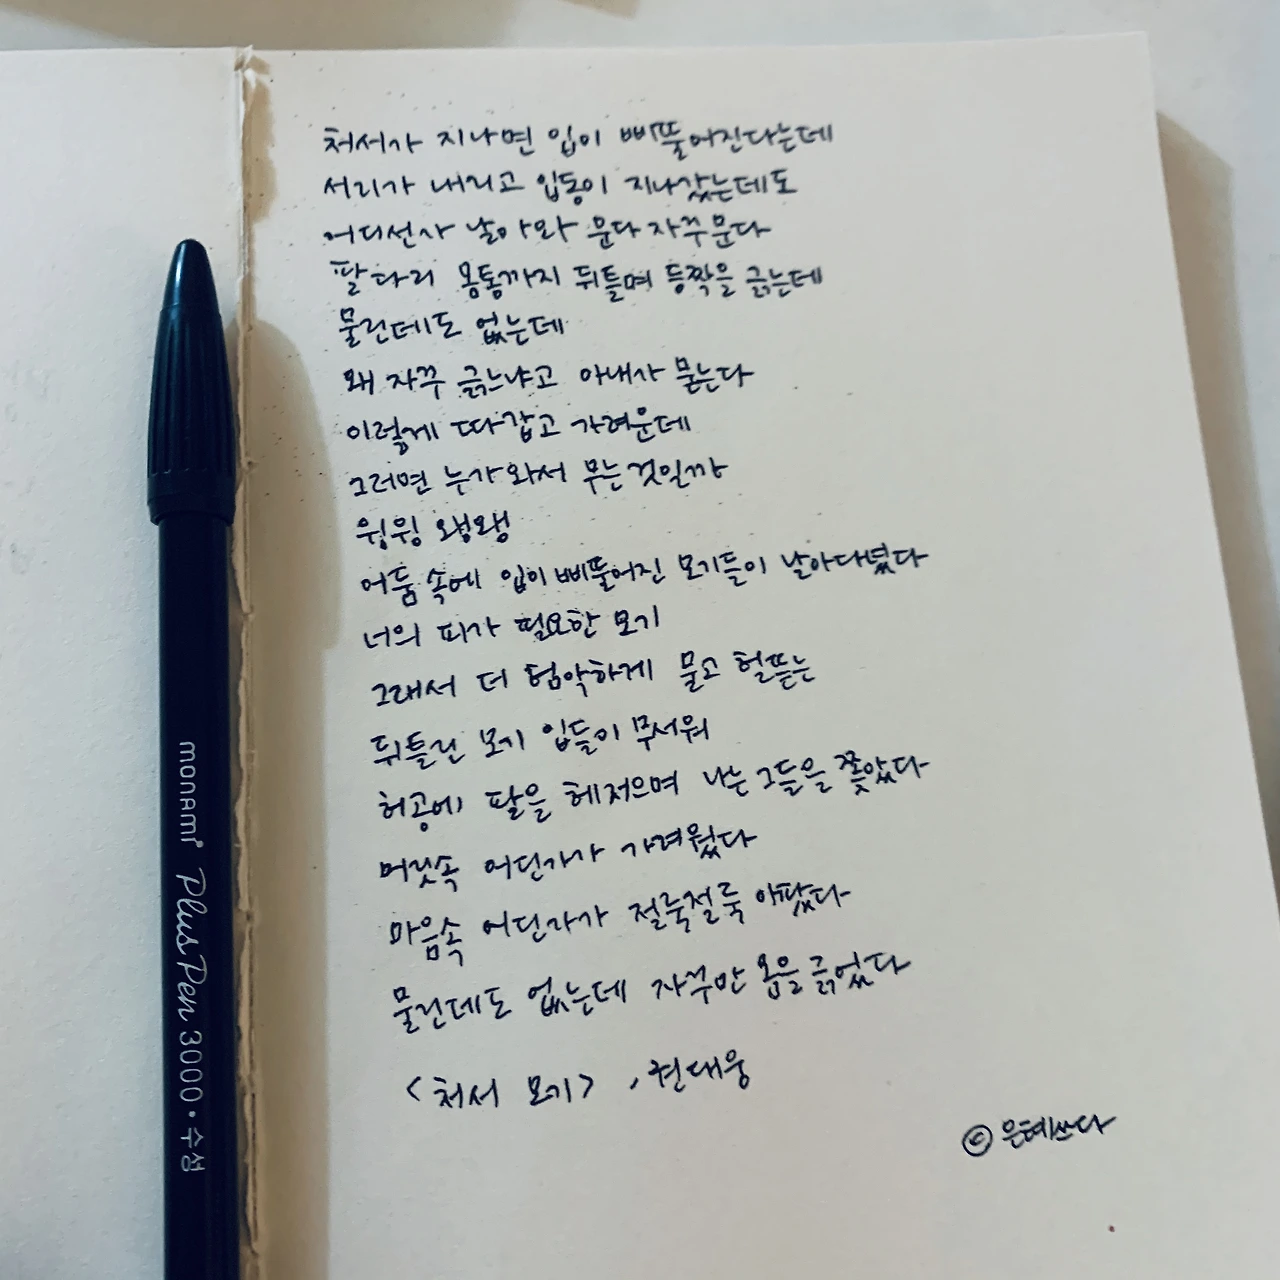 처서가 지나면 입이 삐뚤어진다는데
서리가 내리고 입동이 지나갔는데도
어디선가 날아와 문다 자꾸문다
팔다리 몸통까지 뒤틀며 등짝을 긁는데
물린데도 없는데
왜 자꾸 긁느냐고 아내가 묻는다
이렇게 따갑고 가려운데
그러면 누가 와서 무는 것일까
윙윙 왱왱
어둠 속에 입이 삐뚤어진 모기들이 날아다녔다
너의 피가 필요한 모기
그래서 더 험악하게 물고 헐뜯는
뒤틀린 모기 입들이 무서워
허공에 팔을 헤저으며 나는 그들을 쫓았다
머릿속 어딘가가 가려웠다
마음속 어딘가가 절룩절룩 아팠다
물린데도 없는데 자꾸만 몸을 긁었다
<처서 모기>, 권대웅
© 은혜쓰다
monami Plus Pen 3000 • 수성